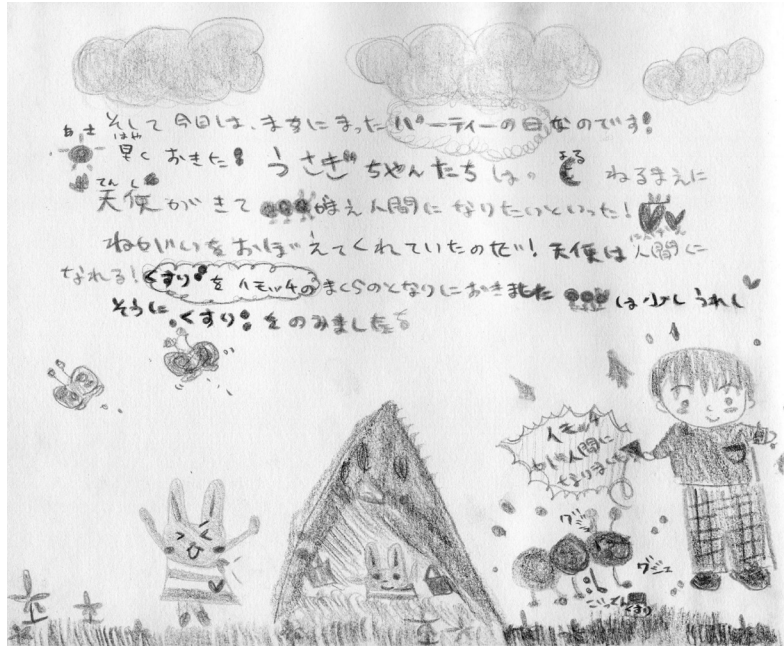 そして今日は、まちにまったパーティーの日なのです!
はや
早くおきた! うさぎちゃんたちは。 よる ねるまえに
てんし
天使がきて 昨夜人間になりたいといった!
ねがいをおぼえてくれていたのだ! 天使は人間に
なれる! くすりをイモッチのまくらのとなりにおきました は少しうれし
そうに、くすりをのみました
イモッチ
が人間に
なりました
グシュ
グシュ
くすり